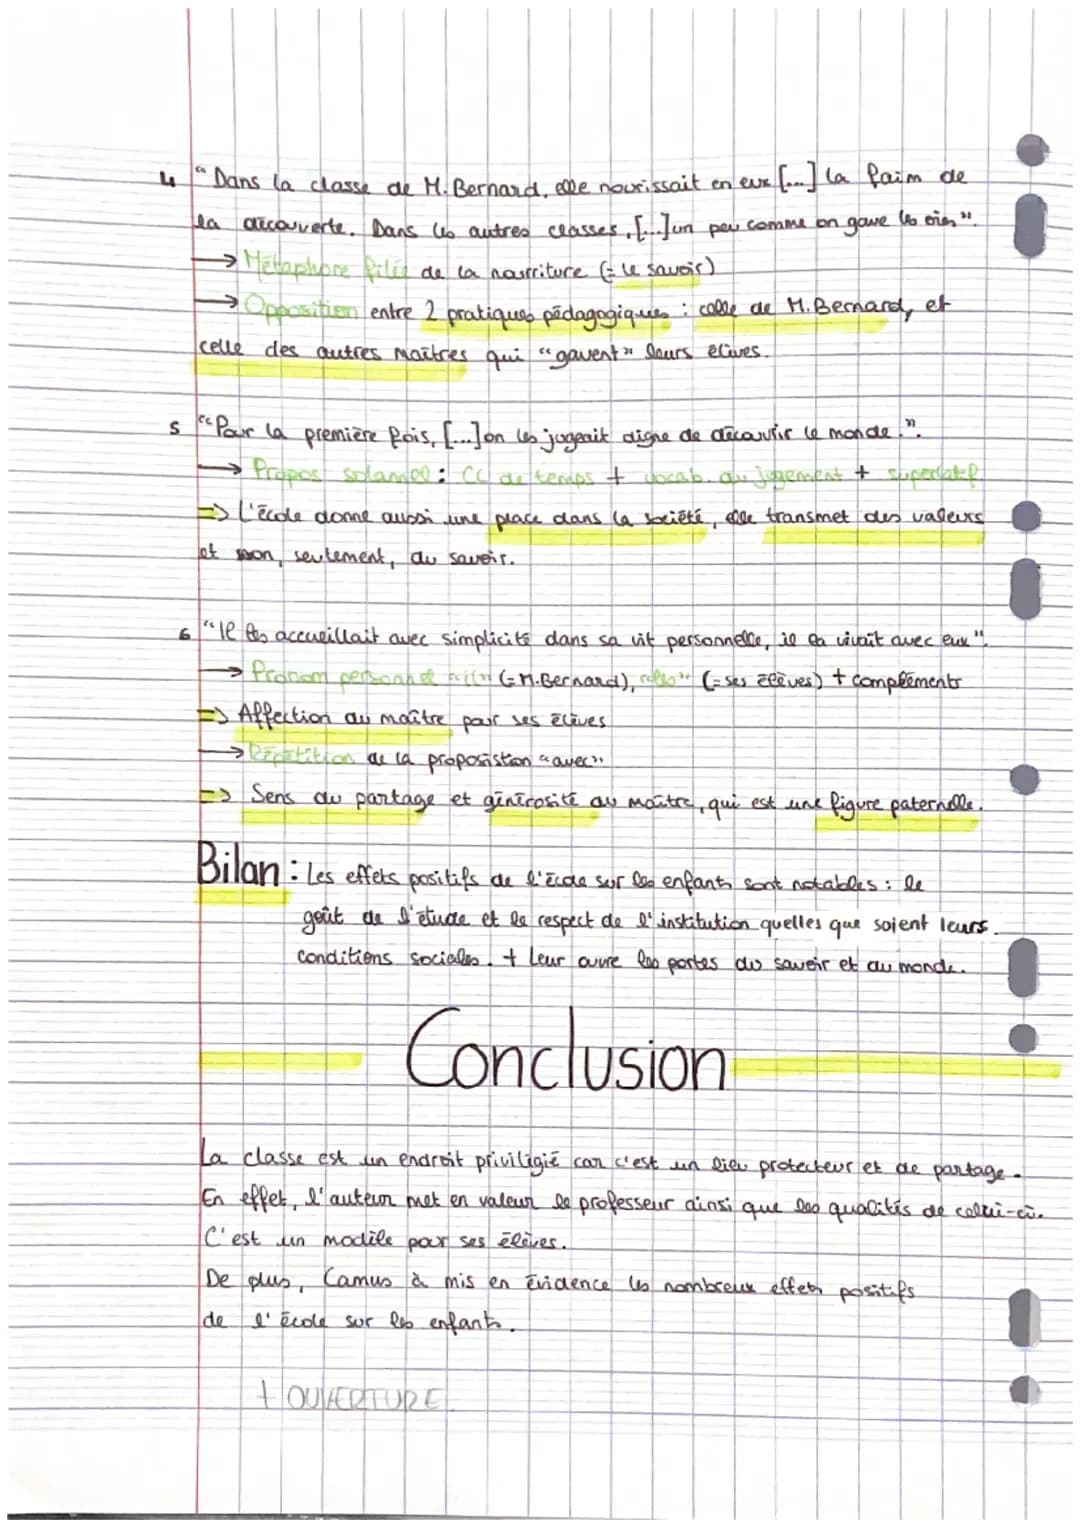 4 "Dans la classe de M. Bernard, elle nourissait en eux [...] la faim de
la découverte. Dans les autres classes, [...] un peu comme on gave les oies".
→ Métaphore filée de la nourriture (= le savoir)
→ Opposition entre 2 pratiques pédagogiques : celle de M. Bernard, et
celle des autres maîtres qui "gavent" leurs élèves.
5 "Pour la première fois, [...] on les jugeait digne de découvrir le monde.".
→ Propos solannel : CC de temps + vocab. du jugement + superlatif
=> L'école donne aussi une place dans la société, elle transmet des valeurs
et non, seulement, du savoir.
6 "Il les accueillait avec simplicité dans sa vit personnelle, il la vivait avec eux".
→ Pronom personnel "il" (= M. Bernard), "les" (= ses élèves) + compléments
=> Affection du maître pour ses élèves
→ Répétition de la proposistion "avec"
=> Sens du partage et générosité du maître, qui est une figure paternelle.
Bilan : Les effets positifs de l'école sur les enfants sont notables : le
goût de l'étude et le respect de l'institution quelles que soient leurs
conditions sociales. + Leur ouvre les portes du savoir et du monde.
Conclusion
La classe est un endroit priviligié car c'est un lieu protecteur et de partage.
En effet, l'auteur met en valeur le professeur ainsi que les qualités de celui-ci.
C'est un modèle pour ses élèves.
De plus, Camus à mis en évidence les nombreux effets positifs
de l'école sur les enfants.
+ OUVERTURE.